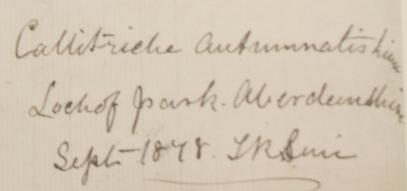 Callitriche autumnalis Linn
Loch of park. Aberdeenshire
Sept 1878.